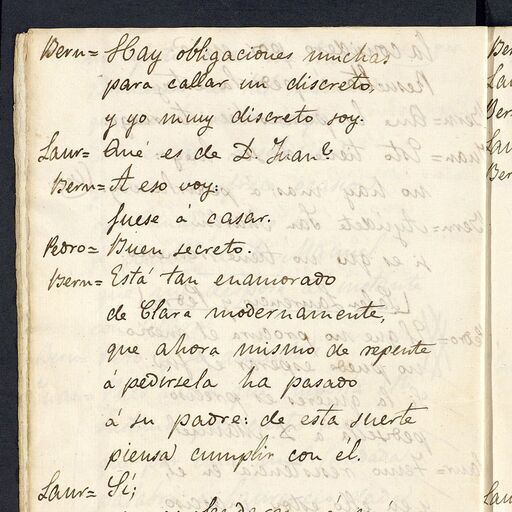 Bern= Hay obligaciones muchas
para callar un discreto,
y yo muy discreto soy.
Laur= Qué es de D. Juan?
Bern= A eso voy:
fuese á casar.
Pedro= Buen secreto.
Bern= Está tan enamorado
de Clara modernamente,
que ahora mismo de repente
á pedírsela ha pasado
á su padre: de esta suerte
piensa cumplir con él.
Laur= Sí;